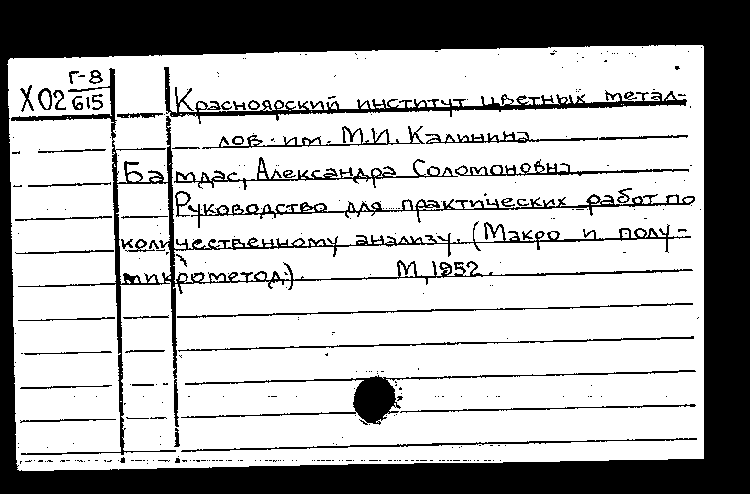 Г-8
Х02 615
Красноярский институт цветных метал-
лов им. М.И. Калинина
Бамдас, Александра Соломоновна.
Руководство для практических работ по
количественному анализу. (Макро и полу-
микрометод). М, 1952.